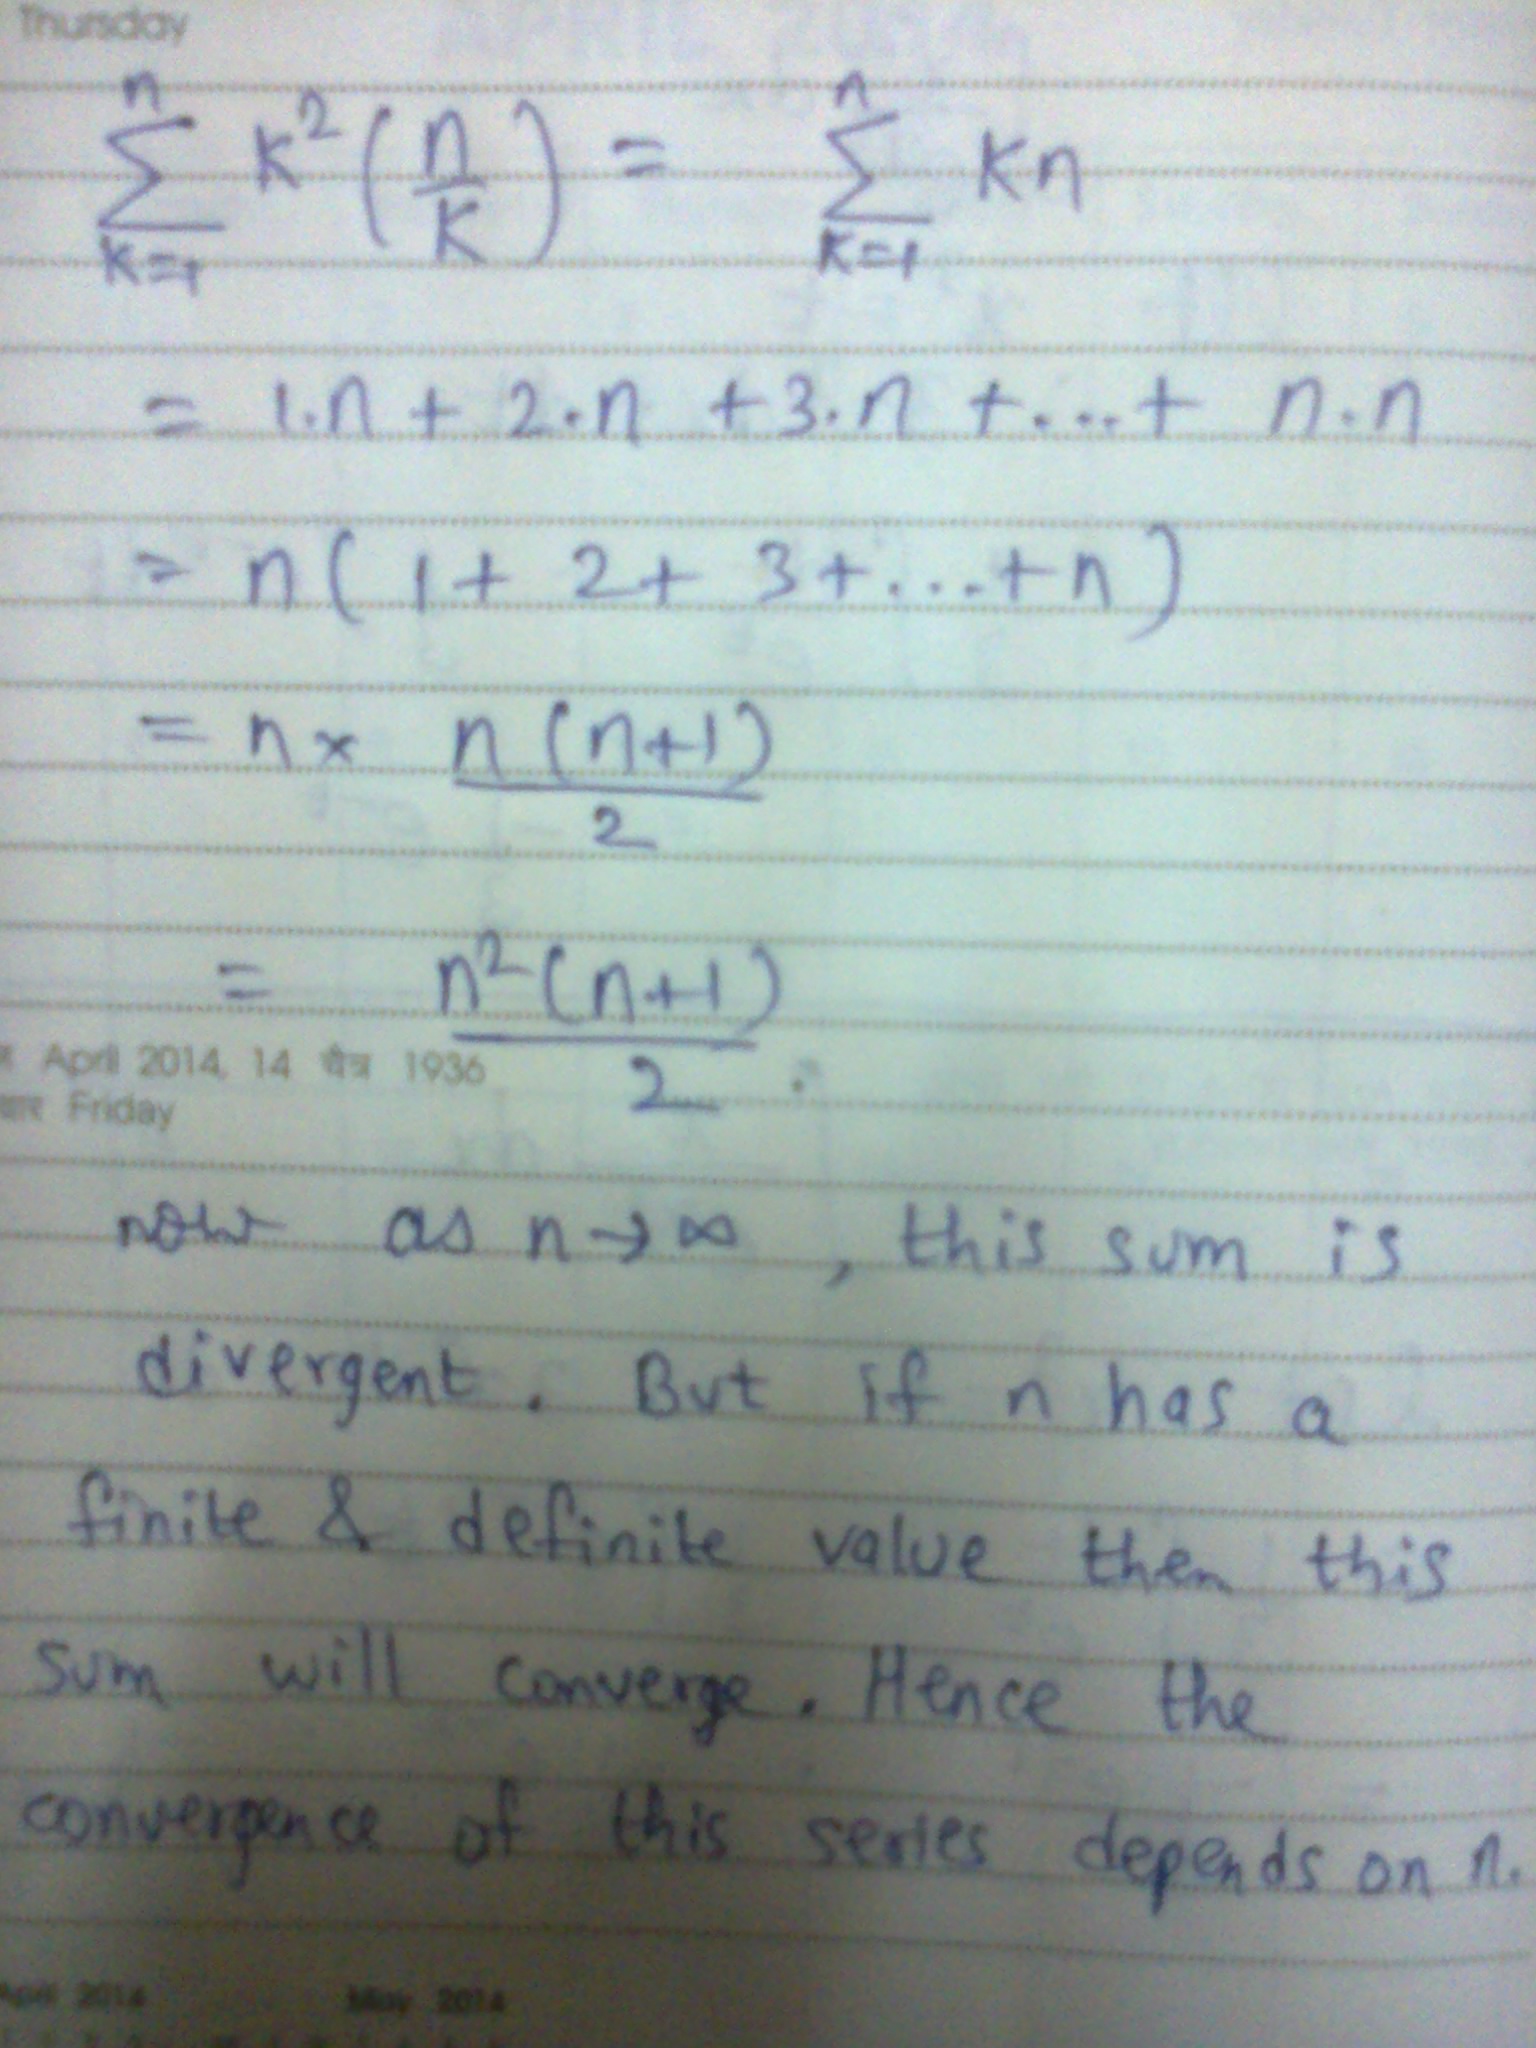 Thursday
n n
∑ k² (n/k) = ∑ kn
k=1 k=1
= 1.n + 2.n + 3.n + ... + n.n
= n ( 1 + 2 + 3 + ... + n )
= n × n (n+1)/2
= n² (n+1)/2 .
April 2014, 14 चैत्र 1936
Friday
now as n → ∞ , this sum is
divergent. But if n has a
finite & definite value then this
sum will converge. Hence the
convergence of this series depends on n.
April 2014 May 2014